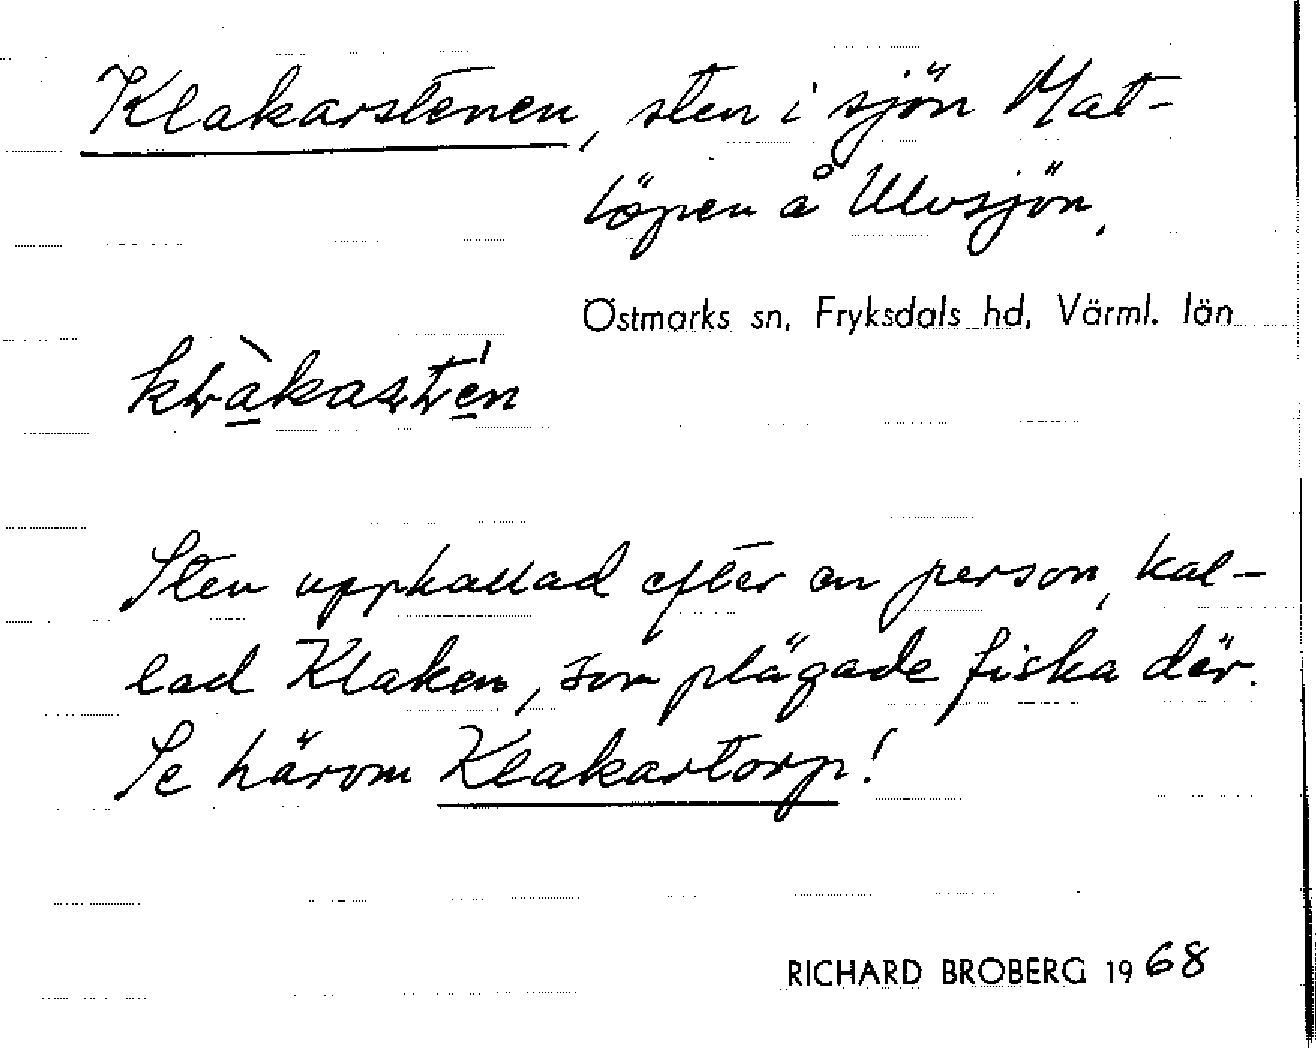 Klakarstenen, sten i sjön Mat-
löpen å Ulvsjön.
Östmarks sn, Fryksdals hd, Värml. län
Sten uppkallad efter en person, kal-
lad Klaken, som plägade fiska där.
Se härom Klakartorp!
RICHARD BROBERG 1968